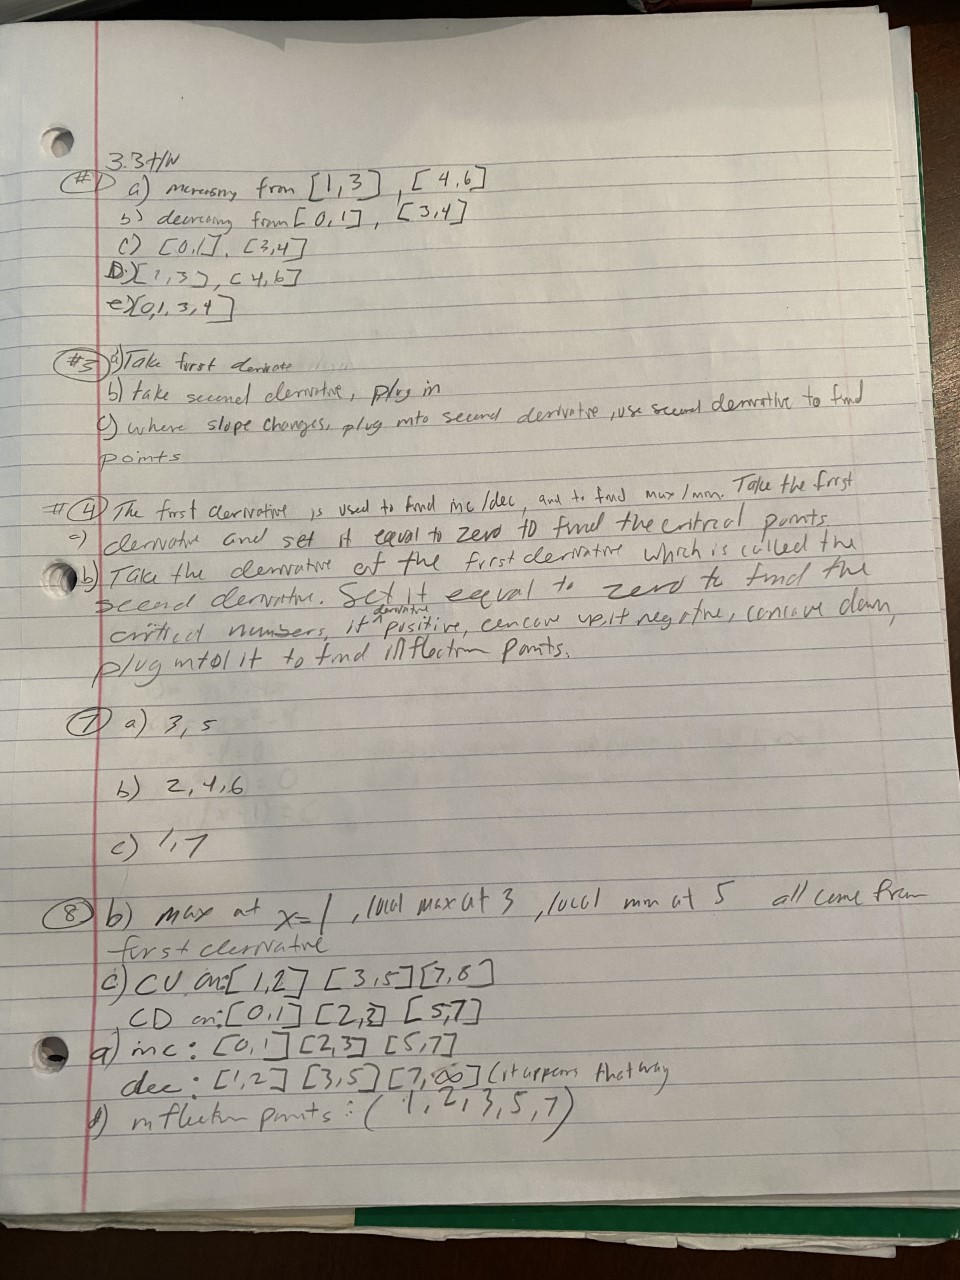 3.3 H/W
#1 a) increasing from [1,3], [4,6]
b) decreasing from [0,1], [3,4]
c) [0,1], [3,4]
D) [1,3], [4,6]
e) [0,1,3,4]
#3 a) Take first
b) take second derivative, plug in
c) where slope changes, plug into second derivative, use second derivative to find
points
#4 The first derivative is used to find inc/dec, and to find max/min. Take the first
a) derivative and set it equal to zero to find the critical points
b) Take the derivative of the first derivative which is called the
second derivative. Set it eequal to zero to find the
critical numbers, if derivative positive, concave up, if negative, concave down,
plug into it to find inflection points.
7 a) 3, 5
b) 2,4,6
c) 1,7
8 b) max at x=1, local max at 3, local min at 5 all come from
first derivative
c) CU on: [1,2] [3,5] [7,8]
CD on: [0,1] [2,3] [5,7]
a) inc: [0,1] [2,3] [5,7]
dec: [1,2] [3,5] [7,∞] (it appears that way
d) inflection points: (1,2,3,5,7)